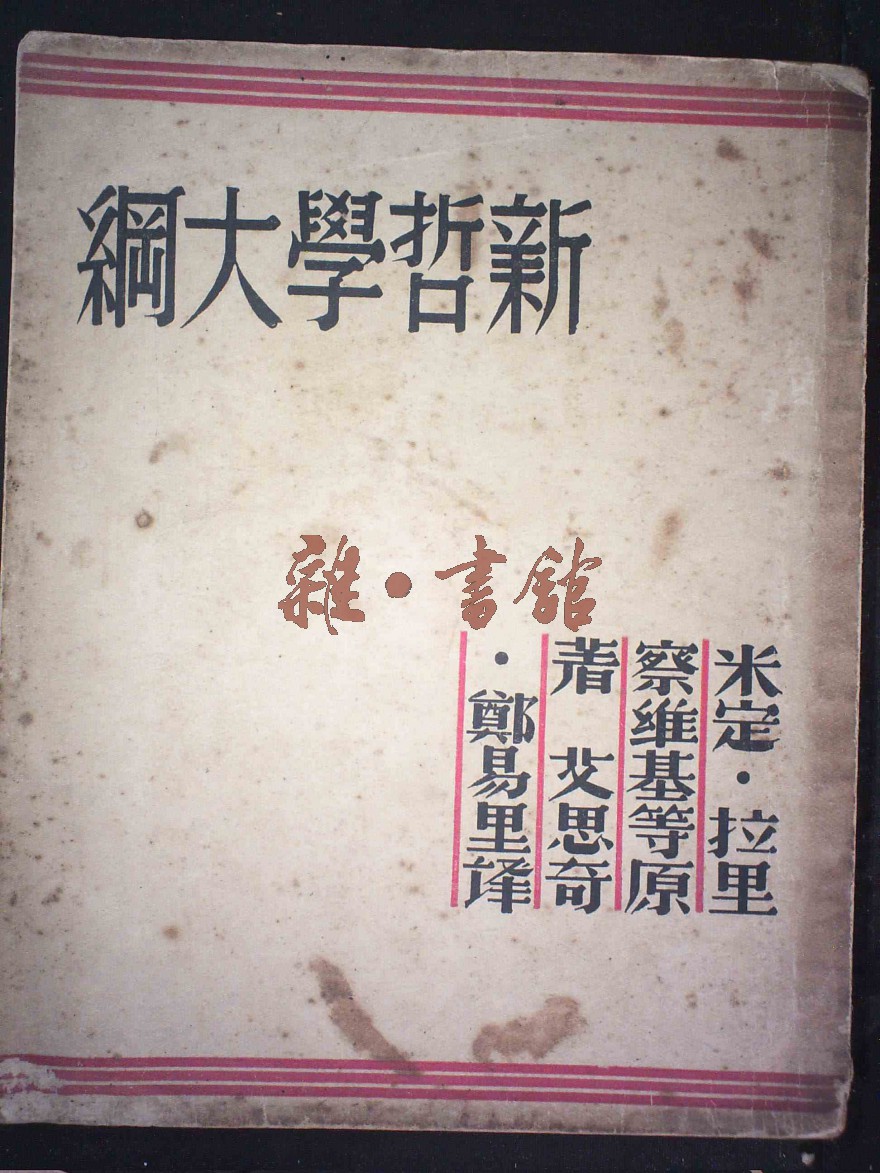 新哲學大綱
雜·書館
米定·拉里
察維基等原
著 艾思奇
·鄭易里譯